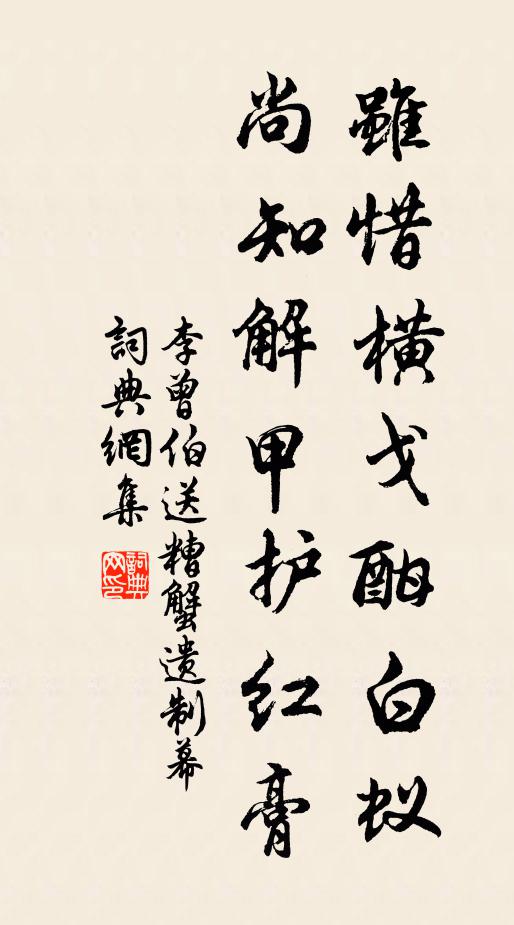 雖惜横戈酣白蚁
尚知解甲护红膏
李曾伯送糟蟹遗制幕
詞典網集
詞典网印